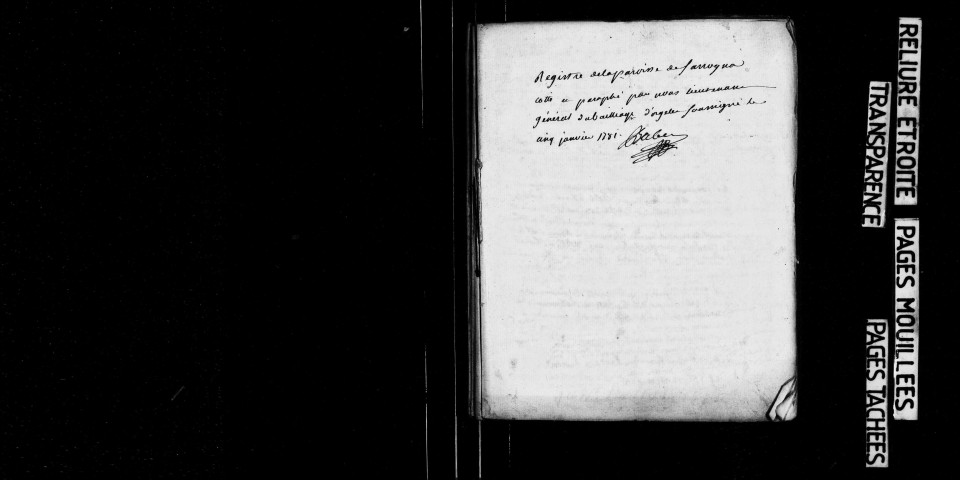 Registre de la paroisse de Sarrogna
cotté et paraphé par nous lieutenant
général du bailliage d'orgelet soussigné le
cinq janvier 1781.
RELIURE ETROITE
TRANSPARENCE
PAGES MOUILLEES
PAGES TACHEES